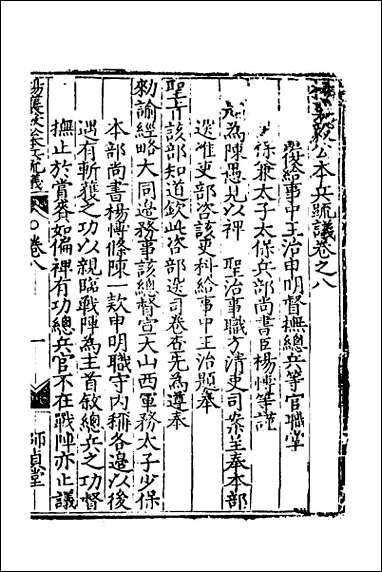 楊襄毅公本兵疏議卷之八
覆給事中王治申明督撫總兵等官職掌
少保兼太子太保兵部尚書臣楊博等謹
題為陳愚見以裨 聖治事職方清吏司案呈奉本部
送准吏部咨該吏科給事中王治題奉
聖旨該部知道欽此咨部送司卷查先為遵奉
勑諭經略大同邊務事該總督宣大山西軍務太子少保
本部尚書楊博條陳一款申明職守内稱各邊以後
遇有斬獲之功以親臨戰陣為主首敘總兵之功督
撫止於賞賚如偏裨有功總兵官不在戰陣亦止議
楊襄毅公本兵疏議
卷八
一
師貞堂